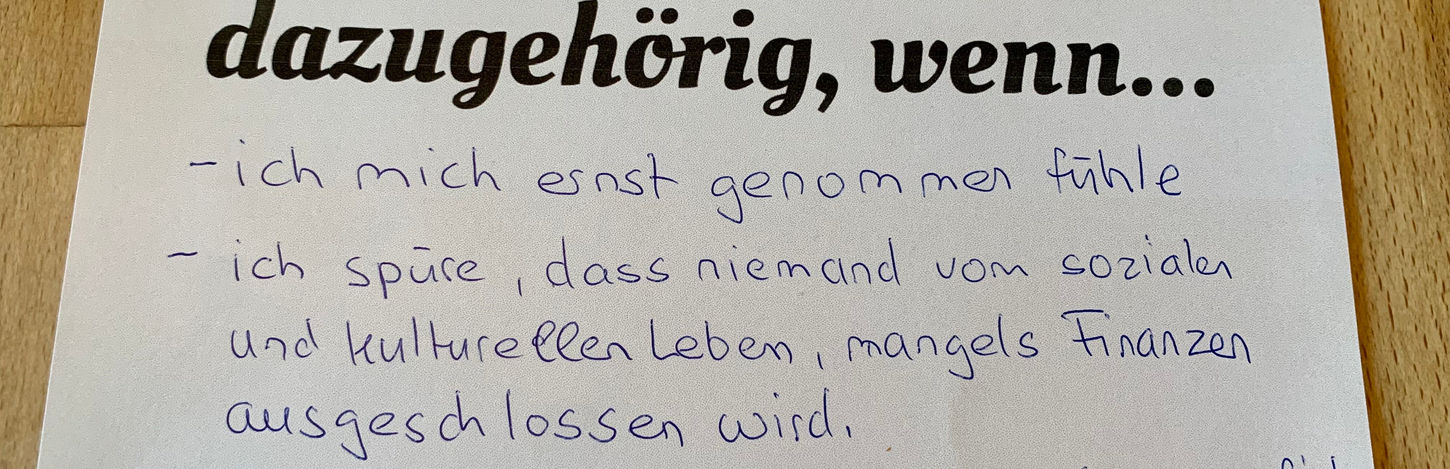 dazugehörig, wenn...
- ich mich ernst genommen fühle
- ich spüre, dass niemand vom sozialen
und kulturellen Leben, mangels Finanzen
ausgeschlossen wird.